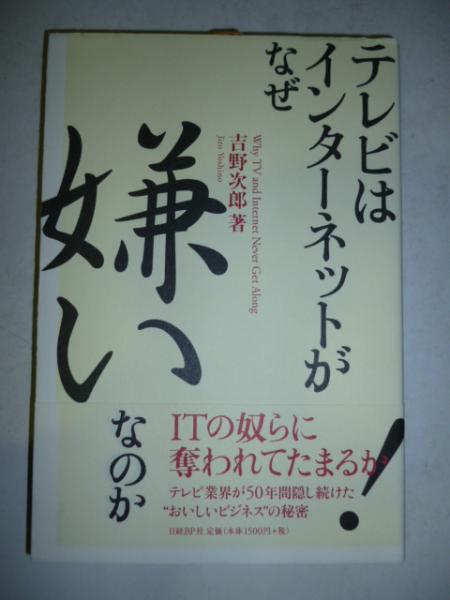 テレビは
インターネットが
なぜ
嫌い
なのか
Why TV and Internet Never Get Along
吉野次郎 著
Jiro Yoshino
ITの奴らに
奪われてたまるか!
テレビ業界が50年間隠し続けた
“おいしいビジネス”の秘密
日経BP社 定価(本体1500円+税)